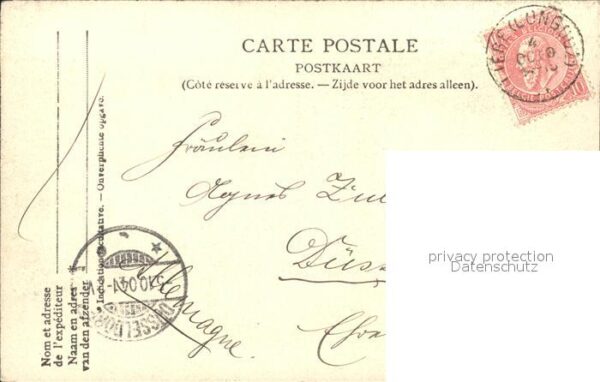 CARTE POSTALE
POSTKAART
(Côté réservé à l'adresse. — Zijde voor het adres alleen).
LIÈGE (LONGDOZ)
4
10
Fräulein
Agnes
Düss
Allemagne.
privacy protection
Datenschutz
DÜSSELDORF
5.10.04.
Indication facultative. — Onverplichte opgave.
Nom et adresse
de l'expéditeur
Naam en adres
van den afzender